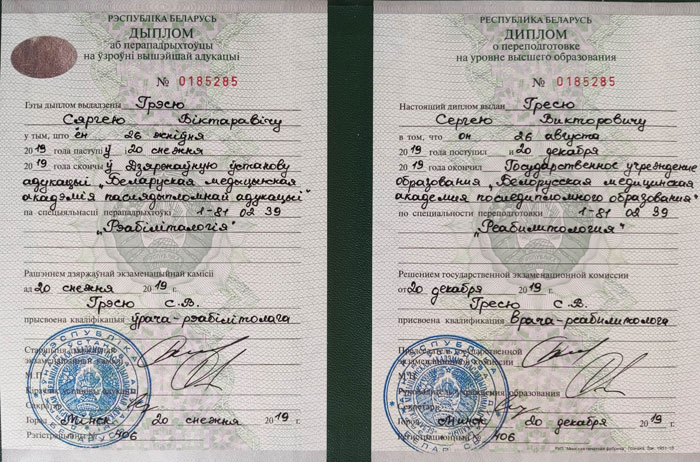 РЭСПУБЛІКА БЕЛАРУСЬ
ДЫПЛОМ
аб перападрыхтоўцы
на ўзроўні вышэйшай адукацыі
№ 0185285
Гэты дыплом выдадзены Грэсю
Сяргею Віктаравічу
у тым, што ён 26 жніўня
2019 года паступіў і 20 снежня
2019 года скончыў Дзяржаўную ўстанову
адукацыі „Беларуская медыцынская
акадэмія паслядыпломнай адукацыі"
па спецыяльнасці перападрыхтоўкі 1-81 02 39
„Рэабіліталогія"
Рашэннем дзяржаўнай экзаменацыйнай камісіі
ад 20 снежня 2019 г.
Грэсю С.В.
прысвоена кваліфікацыя ўрача-рэабілітолага
Старшыня дзяржаўнай
экзаменацыйнай камісіі
М.П.
Кіраўнік установы адукацыі
Сакратар
г. Мінск 20 снежня 2019 г.
Рэгістрацыйны № 406
РЕСПУБЛИКА БЕЛАРУСЬ
ДИПЛОМ
о переподготовке
на уровне высшего образования
№ 0185285
Настоящий диплом выдан Гресю
Сергею Викторовичу
в том, что он 26 августа
2019 года поступил и 20 декабря
2019 года окончил Государственное учреждение
образования „Белорусская медицинская
академия последипломного образования"
по специальности переподготовки 1-81 02 39
„Реабилитология"
Решением государственной экзаменационной комиссии
от 20 декабря 2019 г.
Гресю С.В.
присвоена квалификация врача-реабилитолога
Председатель государственной
экзаменационной комиссии
М.П.
Руководитель учреждения образования
Секретарь
г. Минск 20 декабря 2019 г.
Регистрационный № 406